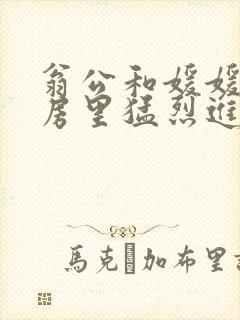 翁公和媛媛
房里猛烈進
馬克 加布里